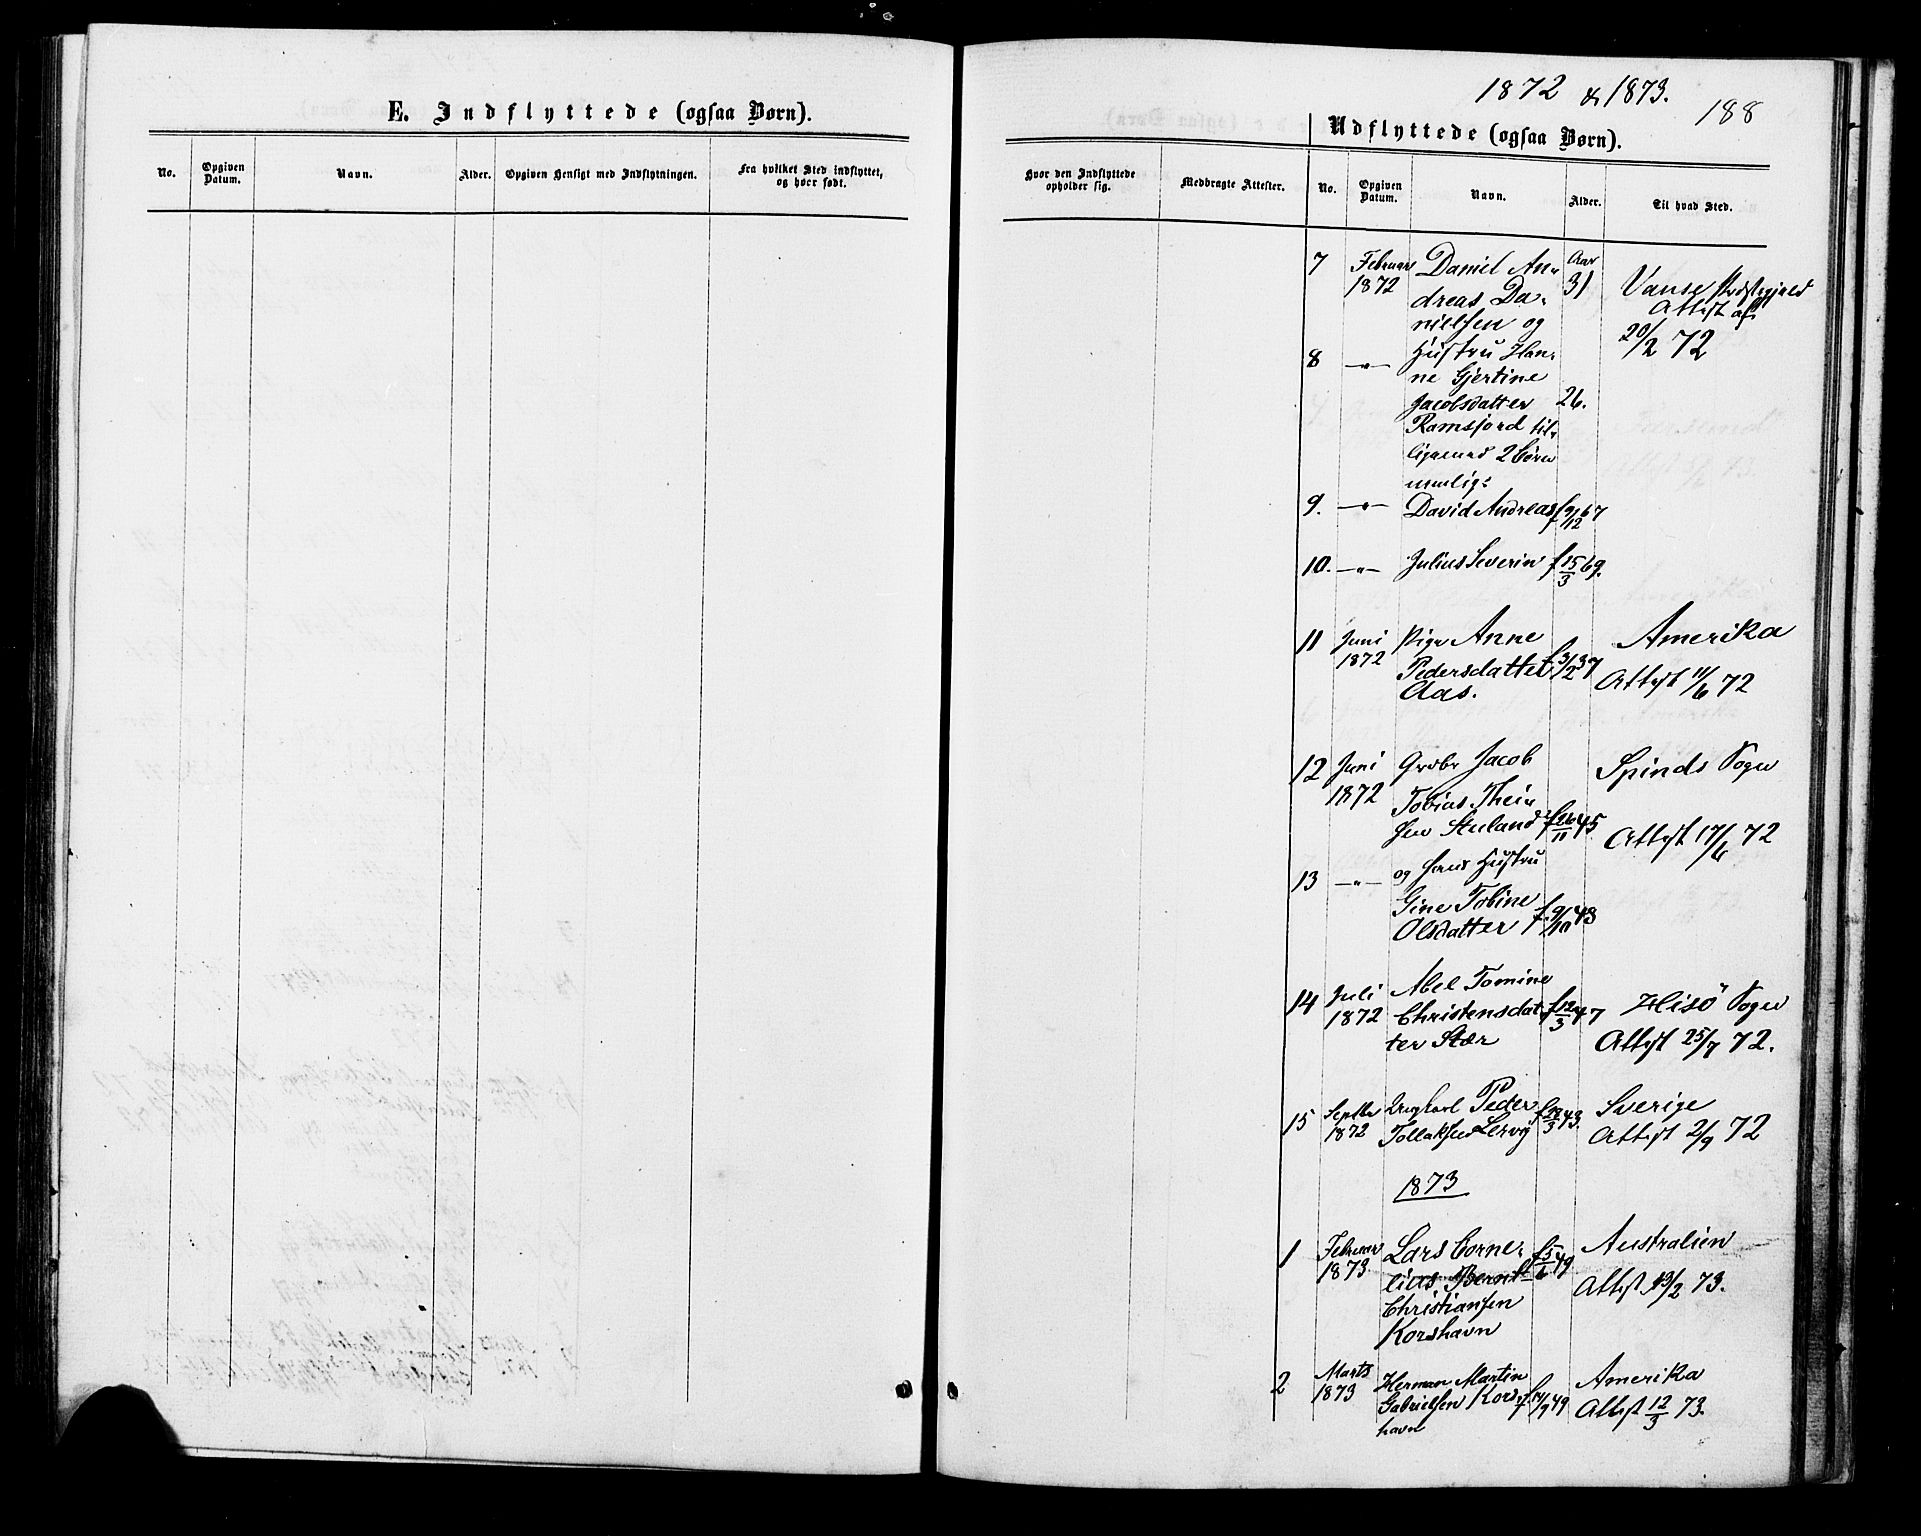 E. Indflyttede (ogsaa Børn).
No.
Opgiven
Datum.
Navn.
Alder.
Opgiven Hensigt med Indflytningen.
Fra hvilket Sted indflyttet,
og hvor født.
1872 & 1873.
188
Udflyttede (ogsaa Børn).
Hvor den Indflyttede
opholder sig.
Medbragte Attester.
No.
Opgiven
Datum.
Navn.
Alder.
Til hvad Sted.
7 Februar Daniel An- Aar
1872 dreas Da- 31 Vanse Præstegjæld
nielsen og Attest af
8 —"— Hustru Han- 20/2 72
ne Gjertine
Jacobsdatter 26.
Ramsfjord til-
ligemed 2 børn
nemlig:
9. —"— David Andreas f 9/12 67
10. —"— Julius Severin f 15/3 69.
11 Juni Pige Anne Amerika
1872 Pedersdatter f 3/2 37 Attest 11/6 72
Aas.
12 Juni Jacob Spinds Sogn
1872 Tobias Thei-
sen Stuland f 26/11 45 Attest 17/6 72
13 —"— og hans Hustru
Gine Tobine
Olsdatter f 9/10 43
14 Juli Abel Tomine Hisö Sogn
1872 Christensdat- f 12/3 47
ter Stær Attest 25/7 72.
15 Septbr Ungkarl Peder 43. Sverige
1872 Tollaksen Lervig Attest 2/9 72
1873
1 Februar Lars Corne- f 5/6 49 Australien
1873. lius Bernt Attest 13/2 73.
Christiansen
Korshavn
2 Marts Herman Martin Amerika
1873 Gabrielsen Kors- f 14/9 49 Attest 12/3 73.
havn